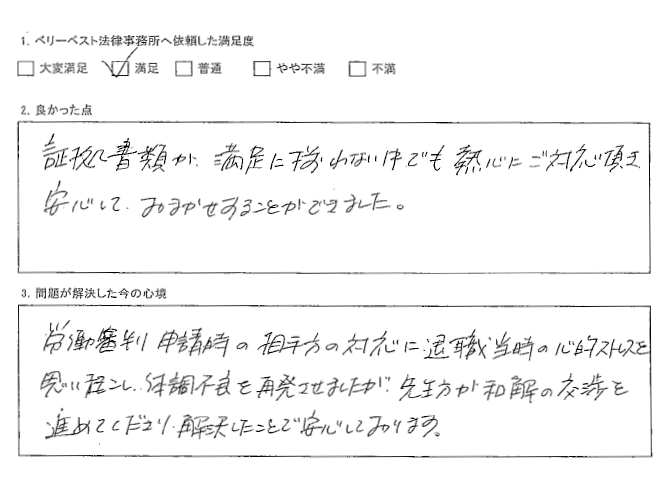 1. ベリーベスト法律事務所へ依頼した満足度
□ 大変満足 ☑ 満足 □ 普通 □ やや不満 □ 不満
2. 良かった点
証拠書類が、満足に揃わない中でも熱心にご対応頂き
安心して、おまかせすることができました。
3. 問題が解決した今の心境
労働審判申請時の相手方の対応に退職当時の心的ストレスを
思い起こし、体調不良を再発させましたが、先生方が和解の交渉を
進めてくださり、解決したことで安心しております。